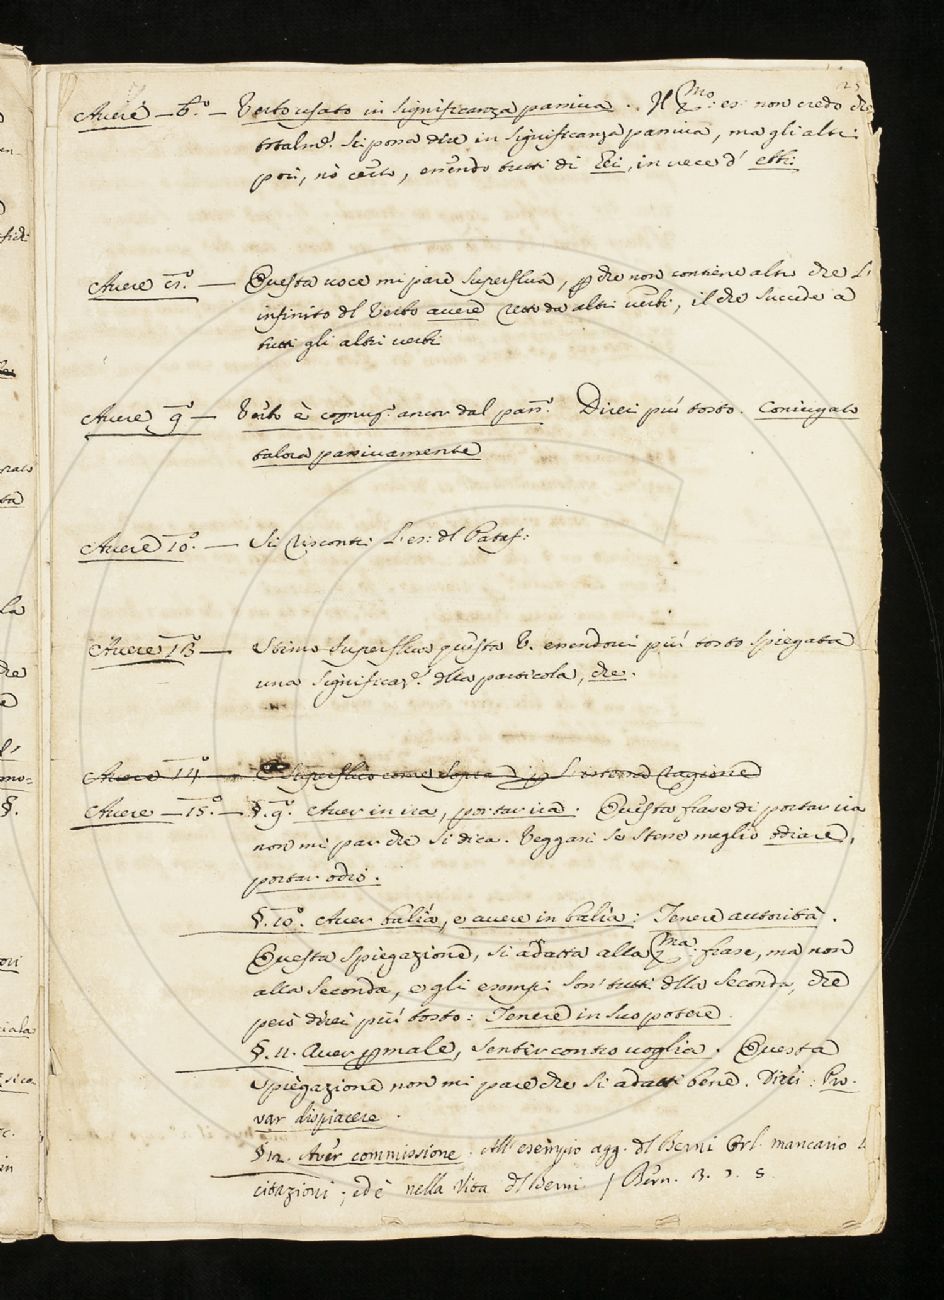 25
Avere — 6.º — Verbo usato in significanza passiva. Il pmo: es: non credo che
totalmẽ. si possa dire in significanza passiva, ma gli altri
poi, nò certo, essendo tutti di Eéi, in vece d' ebbi
Avere — Questa voce mi pare superflua, ꝑche non contiene altro che l'
infinito dl Verbo avere retto da altri verbi, il che succede a
tutti gli altri verbi
Avere 9º — Verbo è coniug. ancor dal pass. Direi più tosto. Coniugato
talora passivamente
Avere 10º. — Si riscontri l'es: dl Pataf:
Avere 13º — Stimo superfluo questo V. essendovi più tosto spiegata
una significaz. dlla particola, che.
Avere 14º — Superfluo come sopra ꝑ l'istessa ragione
Avere — 15º. — §. 9º. Aver in ira, portar ira. Questa frase di portar ira
non mi par che si dica. Veggasi se stesse meglio odiare,
portar odio.
§. 10º. Aver balía, e avere in balía: Tenere autorità.
Questa spiegazione, si adatta alla pma: frase, ma non
alla seconda, e gli esempi son tutti dlla seconda, che
però direi più tosto: Tenere in suo potere.
§. 11. Aver ꝑ male, sentir contro voglia. Questa
spiegazione non mi pare che si adatti bene. Direi: Pro-
var dispiacere.
§ 12. Aver commissione. All' esempio agg. dl Berni Orl. mancano l
citazioni; ed è nella Vita dl Berni / Bern.